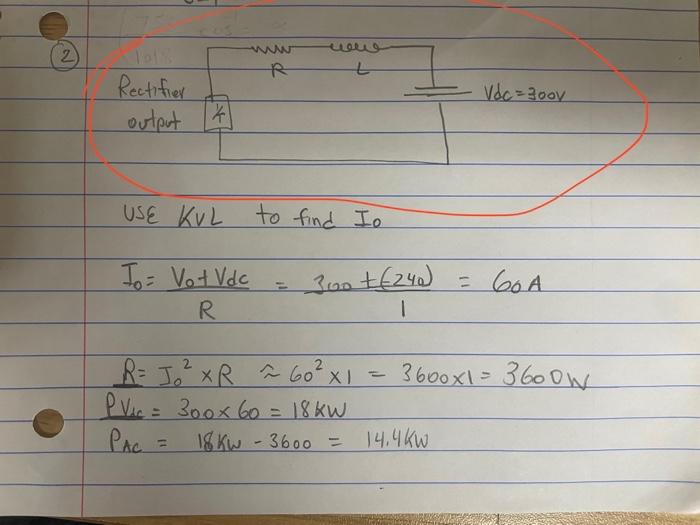 2
R L
Rectifier
output
Vdc = 300V
USE KVL to find Io
Io = Vo + Vdc / R = 300 + (-240) / 1 = 60A
R = Io² × R ≈ 60² × 1 = 3600 × 1 = 3600W
PVdc = 300 × 60 = 18KW
PAC = 18KW - 3600 = 14.4KW